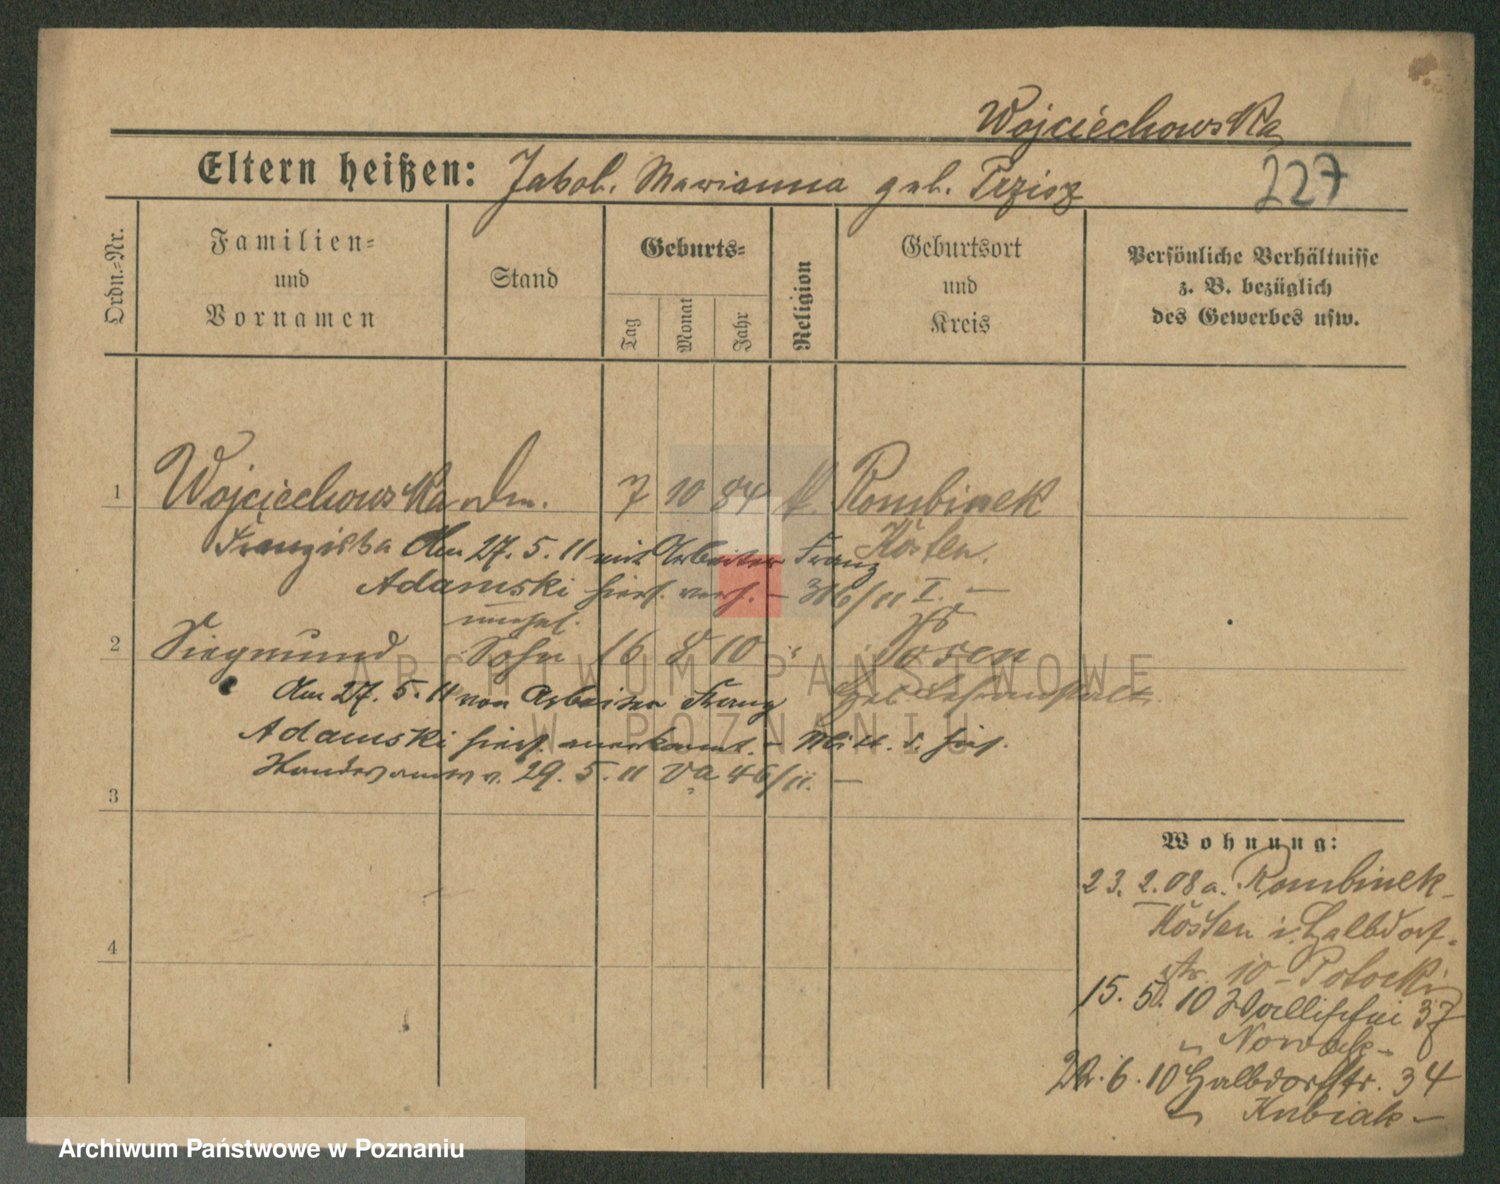 Wojciechowska
Eltern heißen: Jakob. Marianna geb. Trzisz
227
Ordn.-Nr.
Familien-
und
Vornamen
Stand
Geburts-
Tag
Monat
Jahr
Religion
Geburtsort
und
Kreis
Persönliche Verhältnisse
z. B. bezüglich
des Gewerbes usw.
1 Wojciechowska 7 10 84 k. Rombinek
Franziska Am 27. 5. 11 mit Arbeiter Franz Kosten.
Adamski hies. verh. – 316/11 I. –
unehel.
2 Siegmund Sohn 16 8 10 " Posen
Am 27. 5. 11 von Arbeiter Franz Heb. Lehranstalt.
Adamski hies. anerkannt. – Mitt. d. hies.
Standesamts v. 29. 5. 11 Va 46/11. –
3
4
Wohnung:
23. 2. 08 a. Rombinek-
Kosten i. Halbdorf-
str. 10 – Potocki
15. 5. 10 Wallischei 37
Nowak –
22. 6. 10 Halbdorfstr. 34
Kubiak –
ARCHIWUM PAŃSTWOWE
W POZNANIU
Archiwum Państwowe w Poznaniu